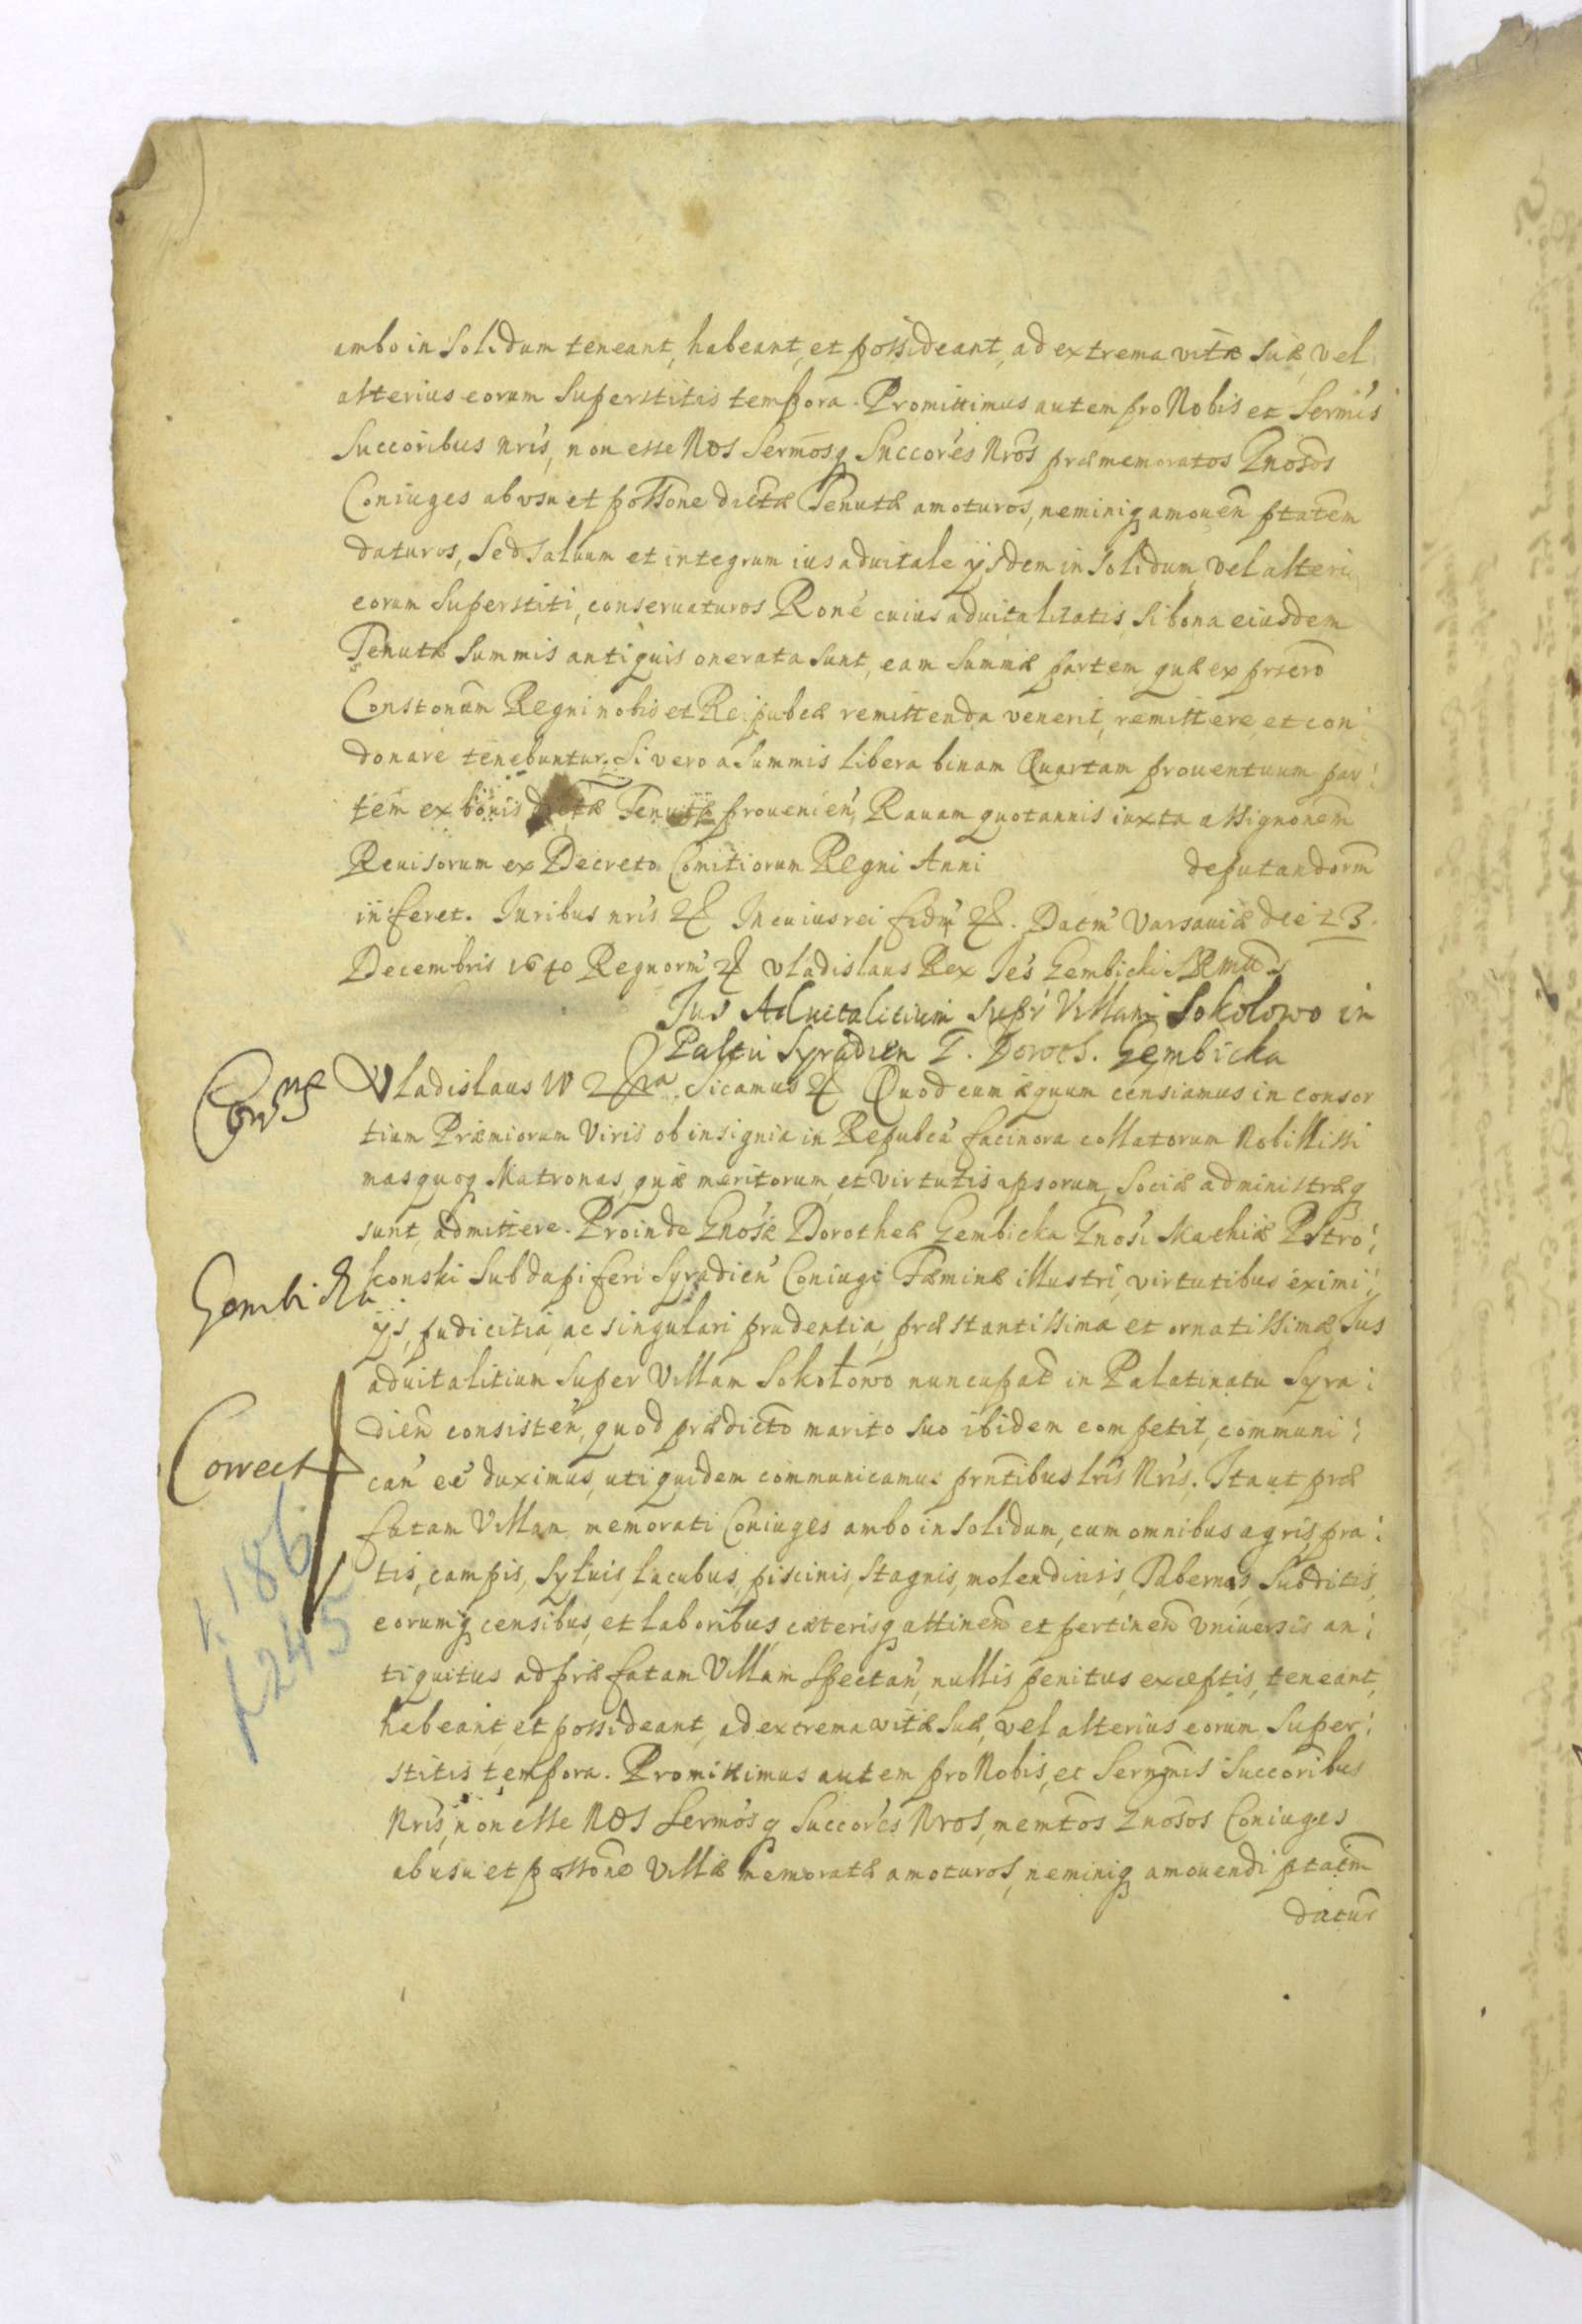 ambo in solidum teneant, habeant, et possideant, ad extrema vitæ suæ, vel
alterius eorum Superstitis tempora. Promittimus autem pro Nobis et Sermis
Succoribus nris, non esse Nos Sermosq Succores Nros præmemoratos Gnosos
Coniuges ab vsu et possone dictæ Tenutæ amoturos, neminiq amouen ptatem
daturos, Sed saluum et integrum ius aduitale ysdem in solidum, vel alteri
eorum Superstiti, conseruaturos Rone cuius aduitalitatis, si bona eiusdem
Tenutæ summis antiquis onerata sunt, eam summæ partem quæ ex prscro
Constonum Regni nobis et Reipubcæ remittenda venerit, remittere, et con:
donare tenebuntur. Si vero a summis libera binam Quartam prouentuum par:
tem ex bonis dictæ Tenutæ prouenien, Rauam quotannis iuxta assignonem
Reuisorum ex Decreto Comitiorum Regni Anni deputandorm
inferet. Juribus nris &c In cuius rei fidm &c. Datm Varsauiæ die 23.
Decembris 1640 Regnorm &c Vladislaus Rex
Jus Aduitalitium supr Villam Sokolowo in
Paltu Syradien G. Doroth. Gembicka
Vladislaus IV &c Sicamus &c Quod cum æquum censiamus in consor
tium Præmiorum Viris ob insignia in Repubca facinora collatorum Nobilissi
mas quoq Matronas, quæ meritorum, et virtutis ipsorum, sociæ administræq
sunt, admittere. Proinde Gnosæ Dorotheæ Gembicka Gnosi Mathiæ Pstro:
Gembicka
konski Subdapiferi Syradien Coniugi Fæminæ illustri, virtutibus eximi:
ys, pudicitia, ac singulari prudentia, præstantissima et ornatissimæ, Jus
aduitalitium super Villam Sokołowo nuncupat in Palatinatu Syra:
Correct
dien consisten, quod prædicto marito suo ibidem competit, communi:
can ee duximus, uti quidem communicamus prntibus lris Nris. Ita ut præ
fatam Villam memorati Coniuges ambo in solidum, cum omnibus agris, pra:
186
tis, campis, syluis, lacubus, piscinis, stagnis, molendinis, Tabernis, Subditis,
245
eorumq censibus, et laboribus, cæterisq attinen et pertinen vniuersis an:
tiquitus ad præfatam Villam spectan, nullis penitus exceptis, teneant,
habeant, et possideant, ad extrema vitæ suæ, vel alterius eorum super:
stitis tempora. Promittimus autem pro Nobis, et Sernmis Succoribus
Nris, non esse Nos Sermosq Succores Nros, memtos Gnosos Coniuges
ab usu et possone Villæ memoratæ amoturos, neminiq amouendi ptatm
datur